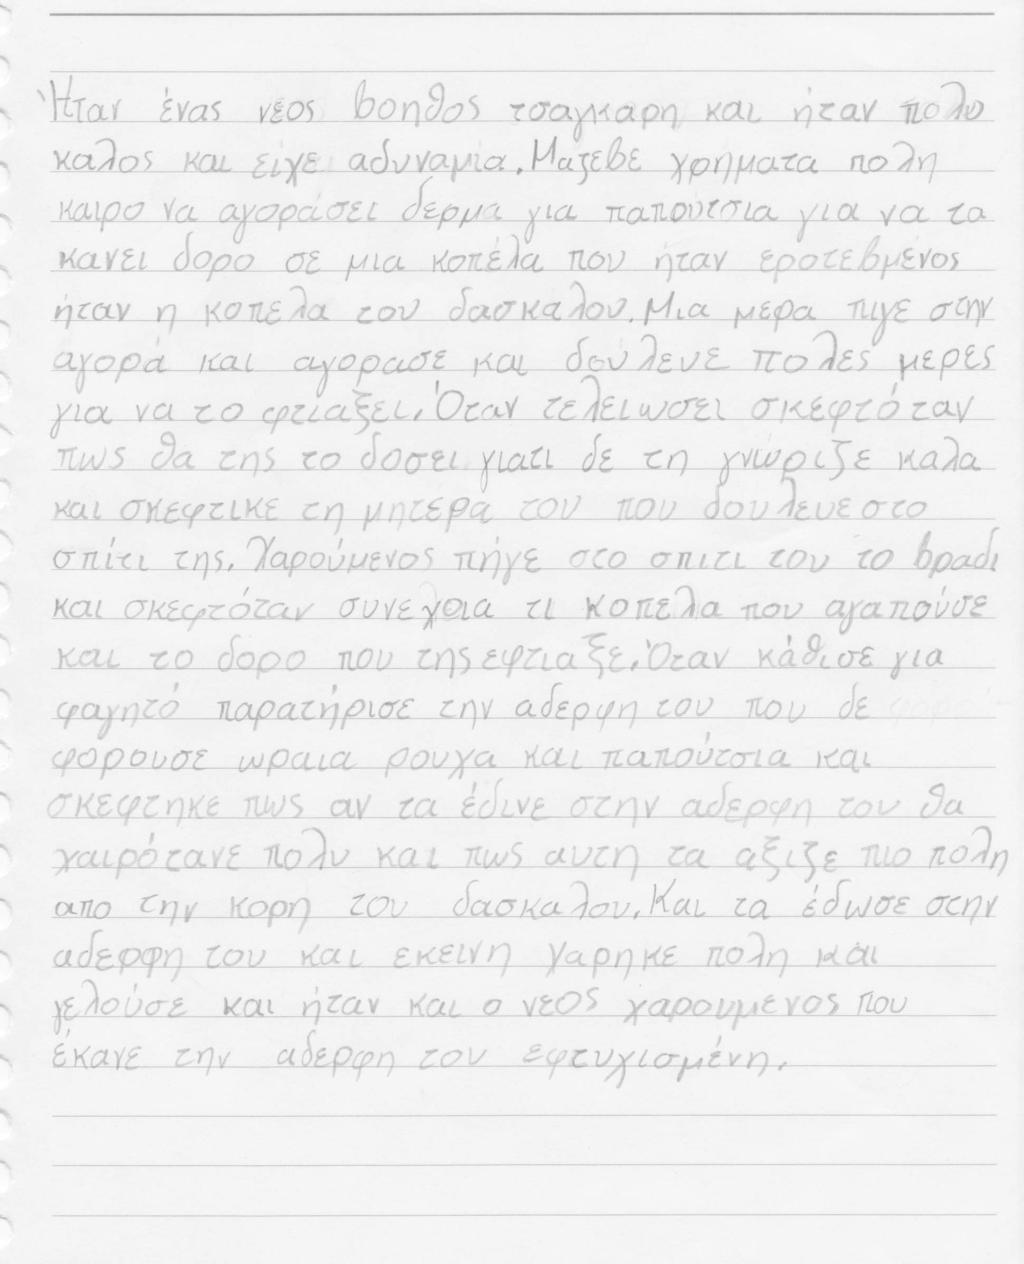 Ήταν ένας νέος βοηθος τσαγκαρη και ήταν πολυ
καλος και είχε αδυναμία. Μαζεβε χρηματα πολη
καιρο να αγοράσει δερμα για παπούτσια για να τα
κανει δορο σε μια κοπέλα που ήταν εροτεβμένος
ήταν η κοπελα του δασκαλου. Μια μερα πιγε στην
αγορά και αγορασε και δούλευε πολες μερες
για να το φτιαξει. Όταν τελειωσει σκεφτόταν
πως θα της το δοσει γιατι δε τη γνώριζε καλα
και σκεφτικε τη μητερα του που δουλευε στο
σπίτι της. Χαρούμενος πήγε στο σπιτι του το βραδι
και σκεφτόταν συνεχοια τι κοπελα που αγαπούσε
και το δορο που της εφτιαξε. Όταν κάθισε για
φαγητό παρατήρισε την αδερφη του που δε
φορουσε ωραια ρουχα και παπούτσια και
σκεφτηκε πως αν τα έδινε στην αδερφη του θα
χαιρότανε πολυ και πως αυτη τα αξιζε πιο πολη
απο την κορη του δασκαλου. Και τα έδωσε στην
αδερφη του και εκεινη χαρηκε πολη και
γελούσε και ήταν και ο νεος χαρουμενος που
έκανε την αδερφη του εφτυχισμένη.